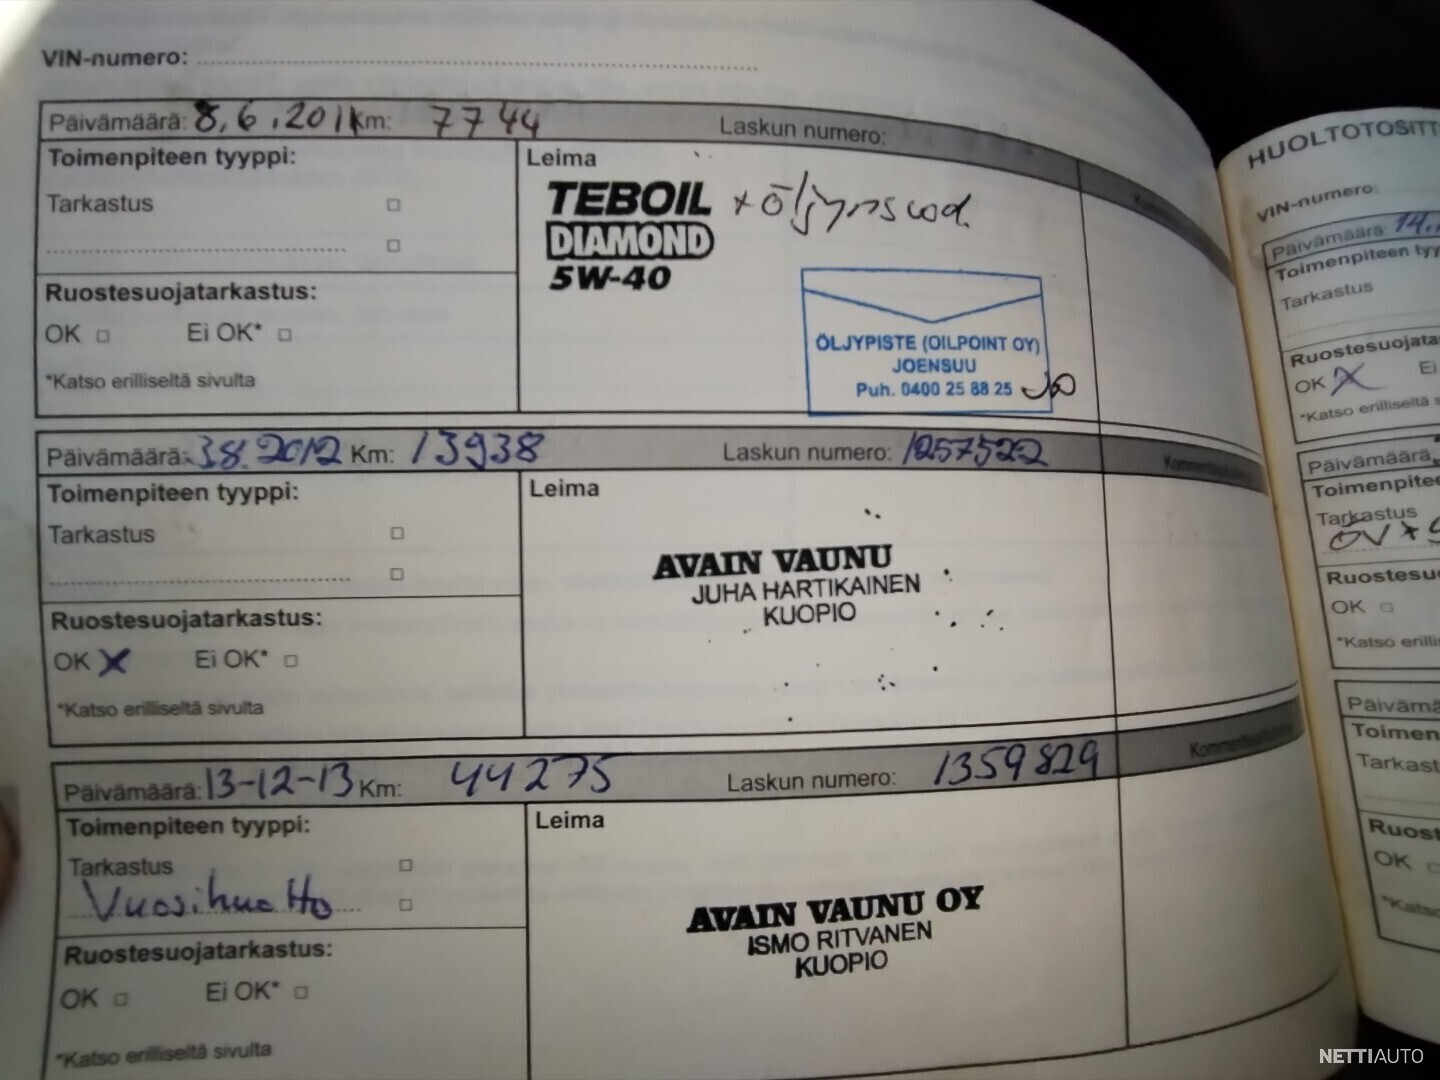 VIN-numero:
Päivämäärä: 8.6.2011 Km: 7744 Laskun numero:
Toimenpiteen tyyppi:
Leima
Tarkastus
TEBOIL
DIAMOND
5W-40
+ öljynsuod.
Ruostesuojatarkastus:
OK Ei OK*
*Katso erilliseltä sivulta
ÖLJYPISTE (OILPOINT OY)
JOENSUU
Puh. 0400 25 88 25
Päivämäärä: 3.8.2012 Km: 13938 Laskun numero: 1257522
Toimenpiteen tyyppi:
Leima
Tarkastus
AVAIN VAUNU
JUHA HARTIKAINEN
KUOPIO
Ruostesuojatarkastus:
OK X Ei OK*
*Katso erilliseltä sivulta
Päivämäärä: 13-12-13 Km: 44275 Laskun numero: 1359829
Toimenpiteen tyyppi:
Leima
Tarkastus
Vuosihuolto
AVAIN VAUNU OY
ISMO RITVANEN
KUOPIO
Ruostesuojatarkastus:
OK Ei OK*
*Katso erilliseltä sivulta
HUOLTOTOSITT
VIN-numero:
Päivämäärä: 14.
Toimenpiteen tyy
Tarkastus
Ruostesuojata
OK X Ei
*Katso erilliseltä s
Päivämäärä
Toimenpitee
Tarkastus
ÖV +
Ruostesu
OK
*Katso erilli
Päivämä
Toimen
Tarkast
Ruost
OK
*Katso
NETTIAUTO